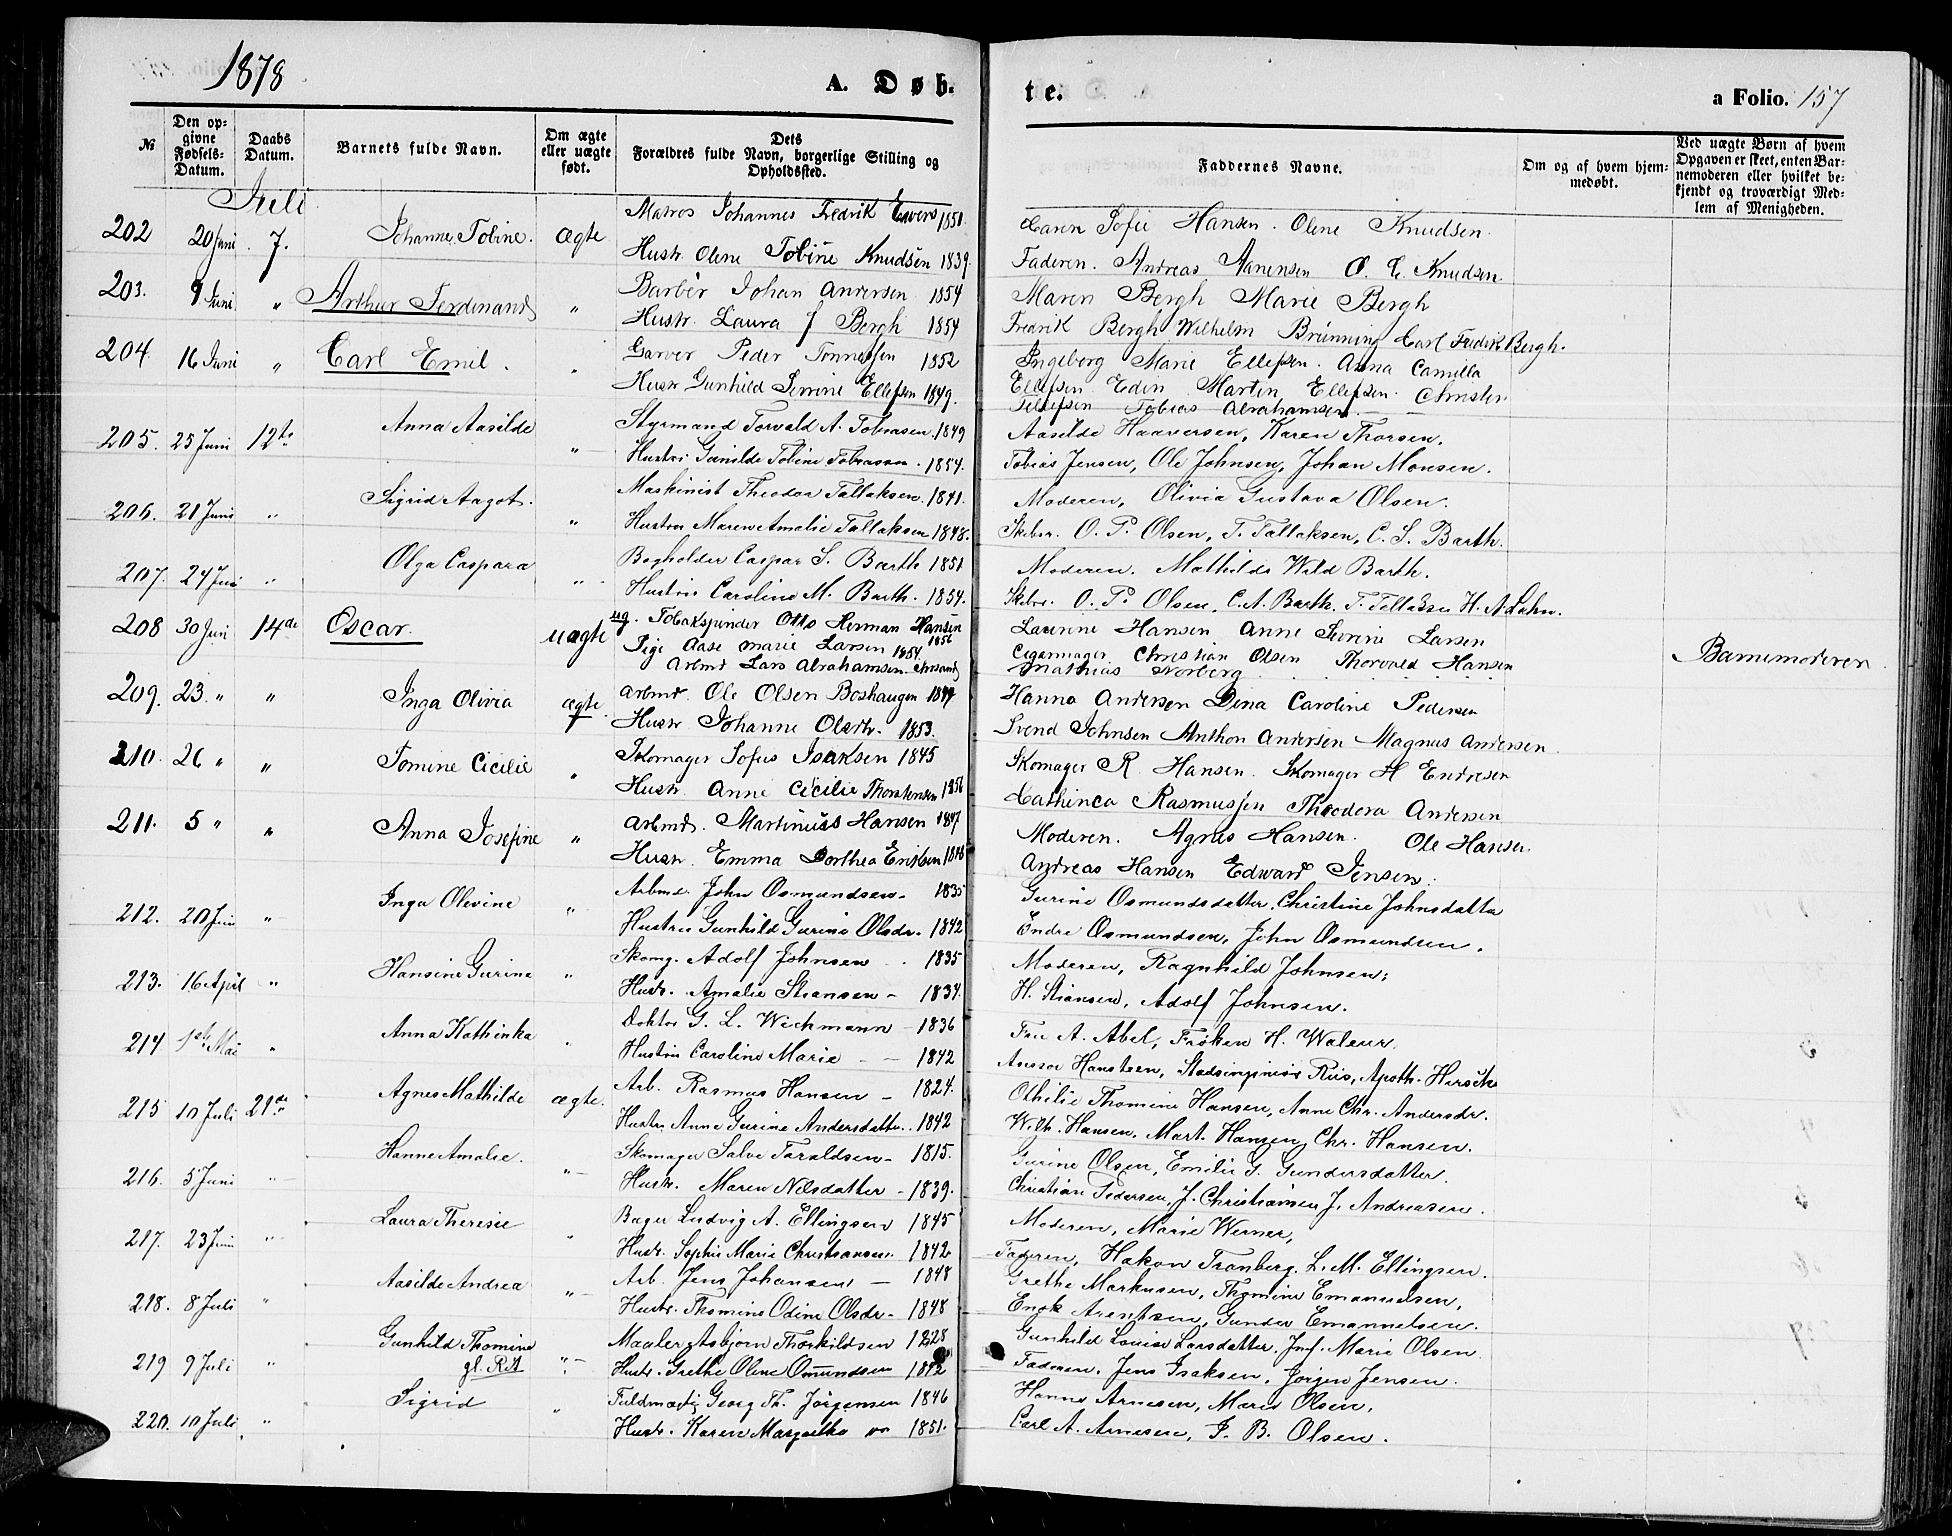 1878
A. Døb-
te.
a Folio. 157
№
Den op-
givne
Fødsels-
Datum.
Daabs
Datum.
Barnets fulde Navn.
Om ægte
eller uægte
født.
Dets
Forældres fulde Navn, borgerlige Stilling og
Opholdssted.
Faddernes Navne.
Om og af hvem hjem-
medøbt.
Ved uægte Børn af hvem
Opgaven er skeet, enten Bar-
nemoderen eller hvilket be-
kjendt og troværdigt Med-
lem af Menigheden.
Juli
202 20 Juni 7. Johanne Tobine. ægte
Matros Johannes Fredrik Ewers 1850
Hustr. Olene Tobine Knudsen 1839
Sofie Hansen. Olene Knudsen.
Faderen. Andreas Aanensen O. C. Knudsen
203. 9 Juni " Arthur Ferdinand "
Barbér Johan Andersen 1854
Hustr. Laura J Bergh 1854
Maren Bergh Marie Bergh
Fredrik Bergh Wilhelm Brünning Carl Fredrik Bergh.
204. 16 Juni " Carl Emil. "
Garver Peder Tønnessen 1852
Hustr Gunhild Serine Ellefsen 1849.
Ingeborg Marie Ellefsen. Anna Camilla
Ellefsen Martin Ellefsen.
Tellefsen Tobias Abrahamsen.
205. 25 Juni 12te Anna Aasilde "
Styrmand Torvald A. Tobiasen. 1849
Hustru Gunilde Tobine Tobiassen. 1854.
Aasilde Haaversen, Karen Thorsen.
Tobias Jensen, Ole Johnsen, Johan Monsen.
206. 21 Juni " Sigrid Aagot. "
Maskinist Theodor Tallaksen. 1841.
Hustru Maren Amalie Tallaksen 1848.
Moderen, Olivia Gustava Olsen.
Skibsr. O. P. Olsen, T. Tallaksen, C. S. Barth.
207. 24 Juni " Olga Caspara "
Bogholder Caspar S. Barth 1851
Hustru Caroline M. Barth. 1854.
Moderen. Mathilde Wild Barth.
Skibsr. O. P. Olsen, C. A. Barth, T. Tallaksen H. A. Lahn.
208 30 Juni 14de Oscar. uægte
ug. Tobakspinder Otto Herman Hansen 1856
Pige Aase Marie Larsen 1854.
Arbmd Lars Abrahamsen
Laurine Hansen Anne Serine Larsen
Cigarmager Christian Olsen Thorvald Hansen
Mathias Norberg
Barnemoderen
209. 23. " " Inga Olivia ægte.
Arbmd. Ole Olsen Boshaugen 1849
Hustr Johanne Olsdtr. 1853.
Hanna Andersen Dina Caroline Pedersen
Svend Johnsen Anthon Andersen Magnus Andersen.
210. 26 " " Tomine Cicilie "
Skomager Sofus Isaksen 1845
Hustr. Anne Cicilie Thorstensen 1856
Skomager R. Hansen. Skomager H Endresen
Cathinca Rasmussen Theodora Andersen
211. 5 " " Anna Josefine "
Arbmd. Martinius Hansen 1847
Hustr. Emma Dorthea Eriksen 1846
Moderen. Agnes Hansen. Ole Hansen
Andreas Hansen Edward Jensen.
212. 20 Juni " Inga Olevine "
Arbmd. John Osmundsen - 1835
Hustru Gunhild Gurine Olsdr. 1842
Gurine Osmundsdatter, Christine Johnsdatter
Endre Osmundsen, John Osmundsen.
213. 16 April " Hansine Gurine "
Skomg. Adolf Johnsen 1835
Hustr. Amalie Stiansen - 1834.
Moderen, Ragnhild Johnsen;
H. Stiansen, Adolf Johnsen.
214 1ste Mai " Anna Kathinka "
Doktor G. L. Wichmann - 1836
Hustru Caroline Marie - 1842
Fru A. Abel, Frøken H. Waleur.
Assessor Hansteen, Stadsingeniør Riis, Apoth. Hirsch
215 10 Juli 21de Agnes Mathilde ægte.
Arb. Rasmus Hansen - 1824.
Hustru Anne Gurine Andersdatter. 1842
Othilie Thomine Hansen, Anne Chr. Andersdr.
Wilh. Hansen, Mart. Hansen, Chr. Hansen.
216. 5 Juni " Hanne Amalie. "
Skomager Salve Taraldsen - 1815.
Hustr. Maren Nilsdatter - 1839.
Gurine Olsen, Emilie G. Gundersdatter.
Christian Pedersen, J. Christiansen J. Andreasen.
217. 23 Juni " Laura Theresie "
Bager Ludvig A. Ellingsen 1845
Hustr. Sophie Marie Christiansen. 1842
Moderen, Marie Werner,
Faderen, Hakon Tronberg. L. M. Ellingsen.
218. 8 Juli " Aasilde Andrea "
Arb. Jens Johansen - 1848
Hustr. Thomine Odine Olsdr - 1848
Grethe Markusen, Thomine Emanuelsen,
Enok Arentsen, Gunder Emanuelsen.
219 9 Juli " Gunhild Thomine
gl. Rit
Maaler Asbjørn Thorkildsen 1828
Hustr. Grethe Oline Omundsen 1842
Gunhild Louise Larsdatter. Jmf. Marie Olsen.
Faderen. Jens Isaksen, Jørgen Jensen.
220. 10 Juli " Sigrid "
Fuldmægtig Georg Th. Jørgensen 1846
Hustr. Karen Margrethe 1851.
Hanne Arnesen, Maren Olsen,
Carl A. Arnesen, J. B. Olsen.